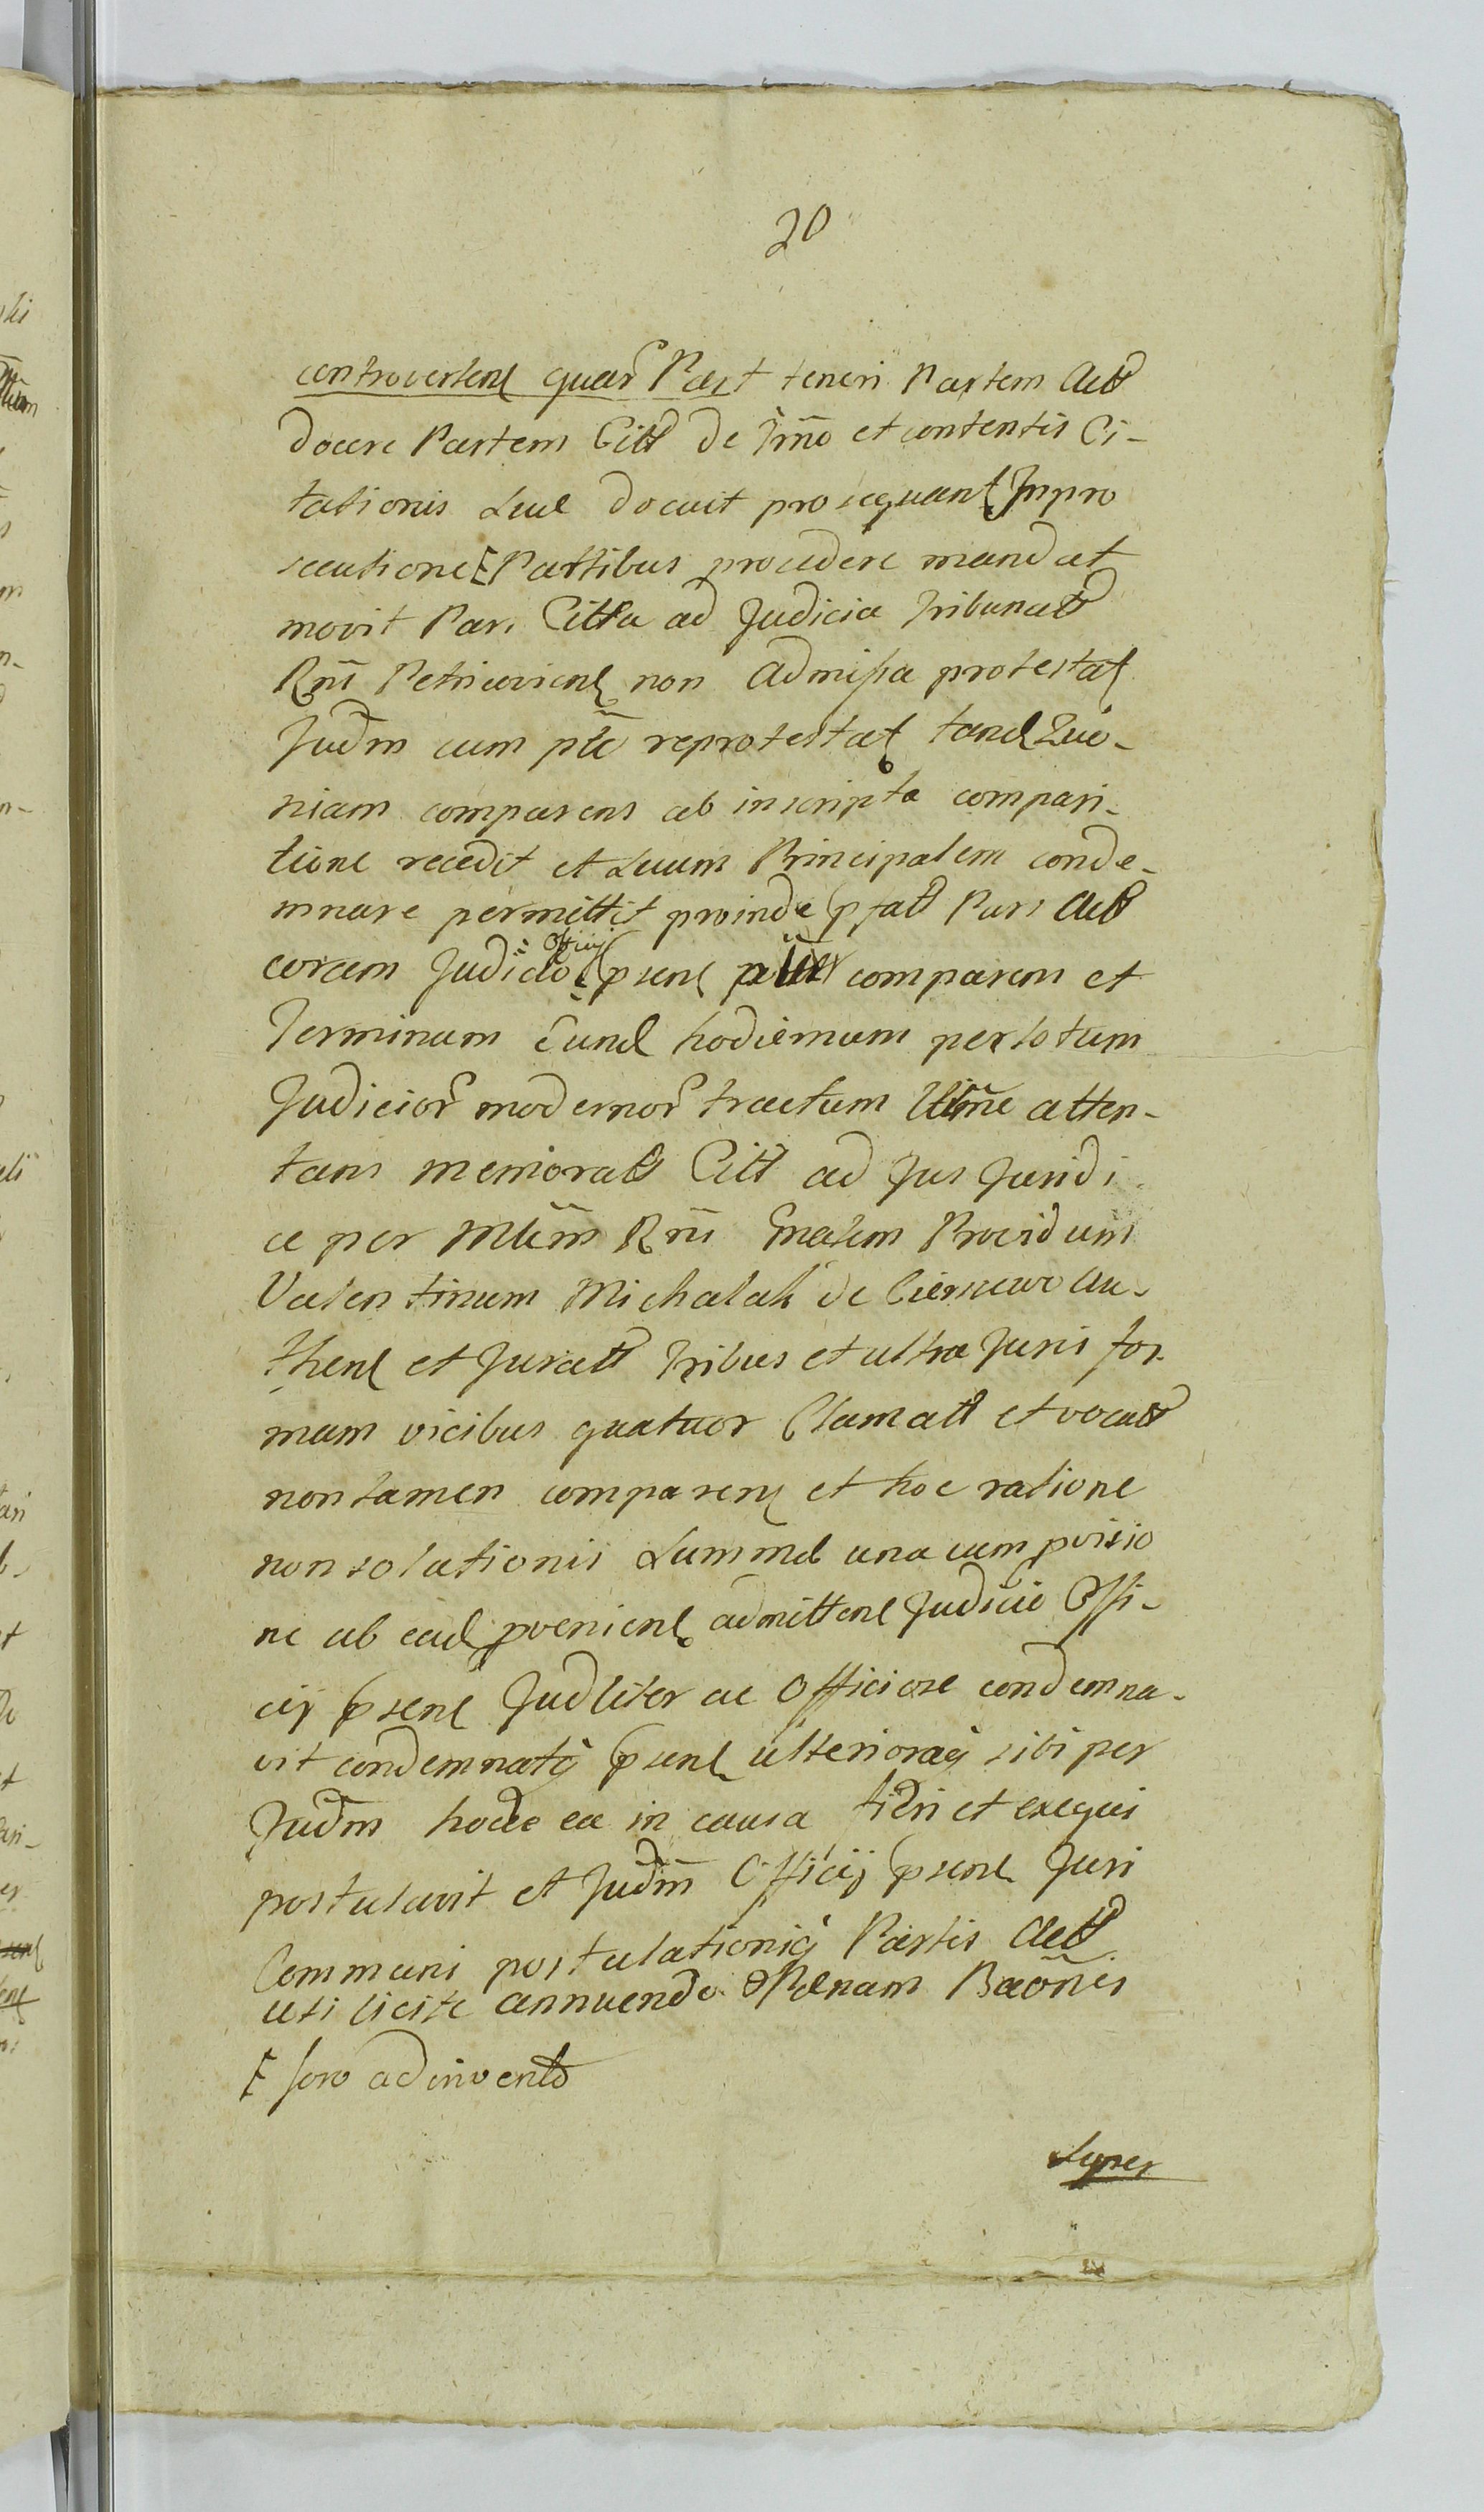 20
controversens quar Part teneri Partem Act
docere Partem Citt de Trmno et contentis Ci-
tationis Quae docuit prosequant In pro
secutione Partibus procedere mandat
movit Pars Citta ad Judicia Tribunatt
Rni Petricoviens non admissa protestat
Judm cum pte reprotestat tand Quo-
niam comparens ab inscripta compari-
tione recedit et suum Principalem conde-
mnare permittit proinde pfatt Pars Act
coram Judicio Officij psens comparens et
Terminum eund hodiernum per totum
Judicior modernor tractum attten-
tans memoratt Citt ad Jus Juridi
ce per Mtlem Rni Gnalem Providum
Valentinum Michalak de Cierniewo Au-
thent et Juratt Tribus et ultra Juris for-
mam vicibus quatuor Clamatt et vocatt
non tamen comparens et hoc ratione
non solutionis Summae una cum provisio
ne ab ead proveniens admittens Judicio Offi-
cij psens Judliter ac Officiose condemna-
vit condemnatq psens ulterioraq sibi per
Judm hocce ea in causa fieri et exequi
postulavit et Judm Officij psens Juri
Communi postulationiq Partis Act
uti licite annuendo Paenam Baonis
E foro adinvento
Super